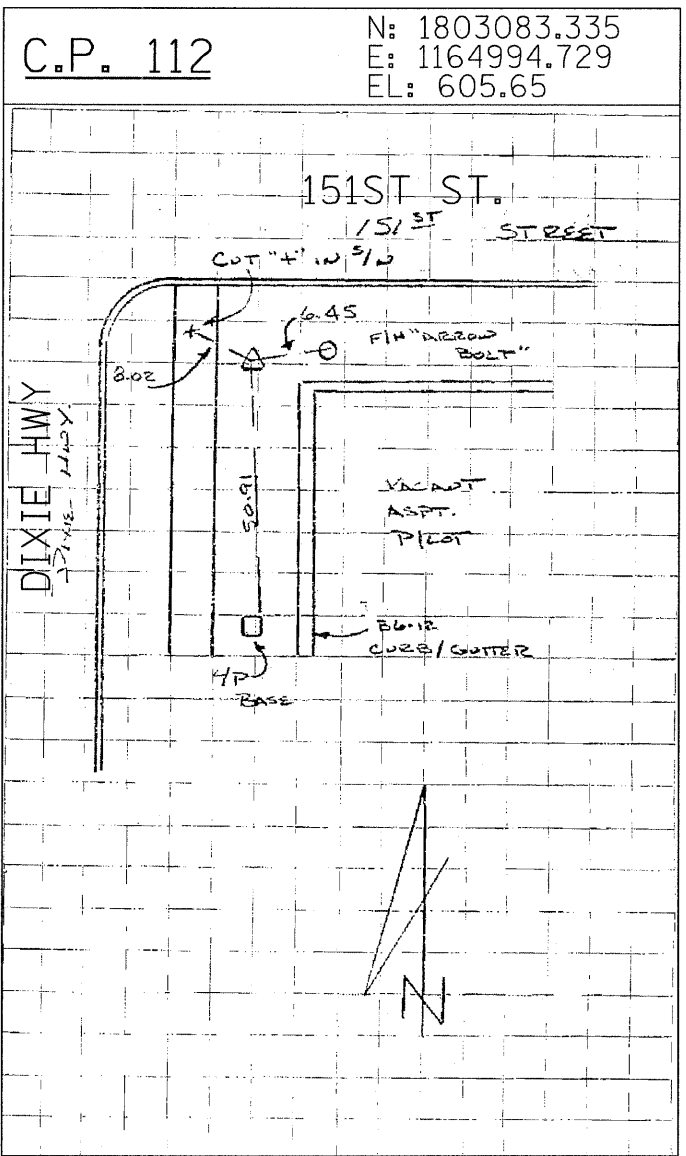 C.P. 112
N: 1803083.335
E: 1164994.729
EL: 605.65
151ST ST.
151ST STREET
CUT "+" IN S/W
6.45
F/H "ARROW
BOLT"
3.02
DIXIE HWY
DIXIE HWY.
50.91
VACANT
ASPT.
P/LOT
B6.12
CURB/GUTTER
BASE
N